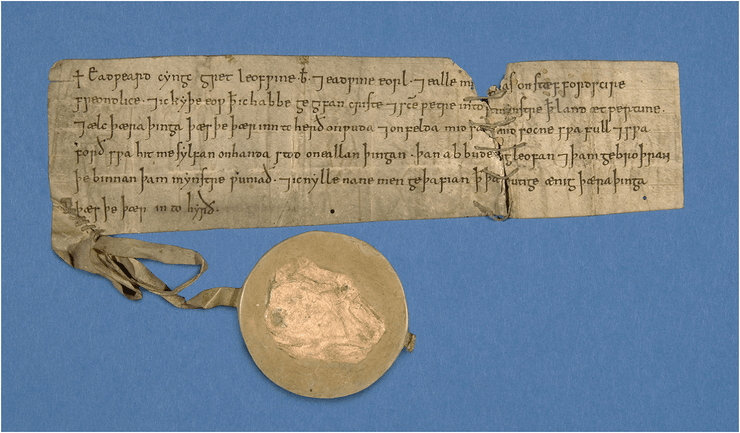 + Eadƿeard cyngc gret Leofƿine .b̄. ⁊ Eadƿine eorl. ⁊ ealle on Stæffordscire
freondlice. ⁊ ic kyþe eoƿ ꝥ ic habbe gegifan criste ⁊ sc̄e petre into mynstre ꝥ land æt pertune.
⁊ ælc þæra þinga þæs þe þær inn to herð on ƿuda ⁊ on felda mid mid socne sƿa full ⁊ sƿa
forð sƿa hit me sylfan on handa stod on eallan þingan. þan abbude leofan ⁊ þam gebroþran
þe binnan þam mynstre ƿuniað. ⁊ ic nylle nane men geþafian ꝥ utige ænig þæra þinga
þæs þe þær in to hyrð.